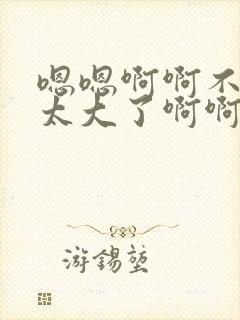 嗯嗯啊啊不
太大了啊啊
游锡堃